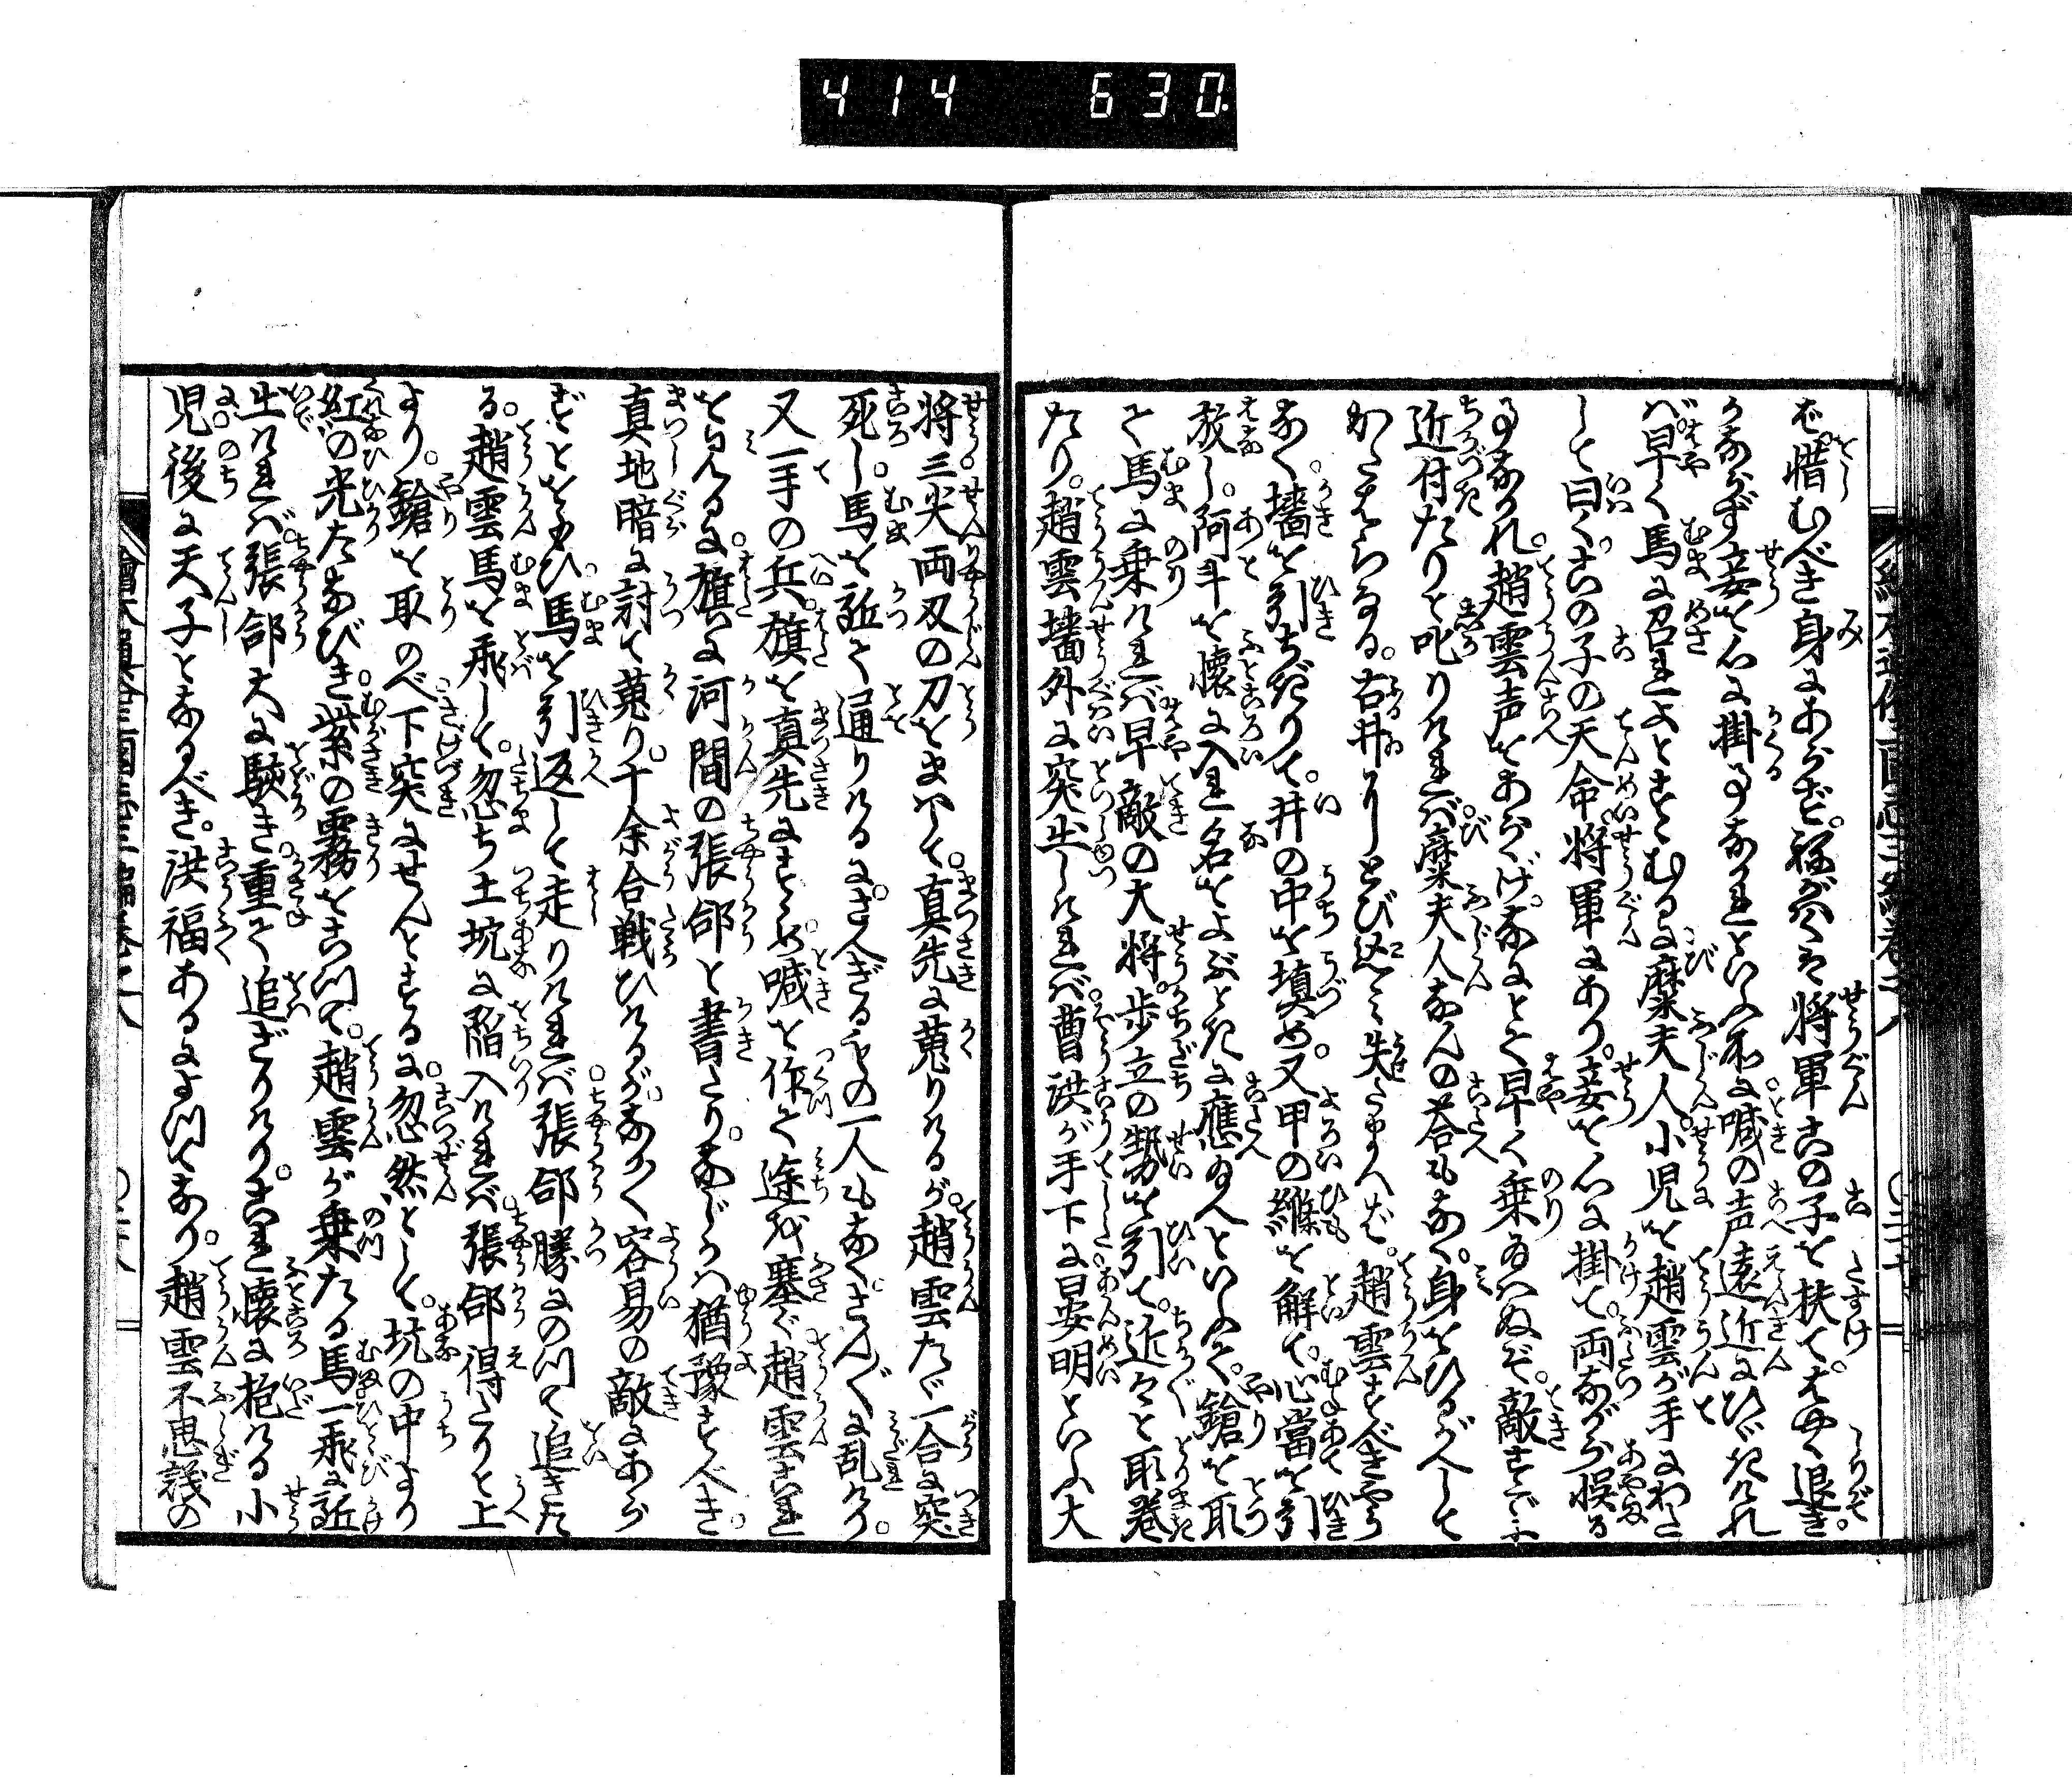 414 630
ば。惜むべき身にあらず。願くは将軍この子を扶て。はやく退き
かならず妾を心に掛る事なかれといふ所に喊の声遠近にひびきけれ
ば早く馬に召れよとすすむるに糜夫人。小児を趙雲が手にわた
して曰く。この子の天命将軍にあり。妾を心に掛て両ながら誤る
事なかれ。趙雲声をあらげ。なにとて早く乗給はぬぞ。敵すでに
近付たりと叱りければ。糜夫人なんの答もなく。身をひるがへして
かたはらなる。古井のうちにとび
なく。墻を引たをして。井の中を填め。又甲の縧を解て。心當を引
放し。阿斗を懐に入れ名をよぶときに應ふ人といふて。鎗を取
て馬に乗ければ早敵の大将。歩立の勢を引て。近々と取巻
たり。趙雲墻外に突出しければ。曹洪が手下に晏明といふ大
将三尖両刃の刀をまはして。真先に蒐りけるが。趙雲たゞ一合に突
死し。馬を
又一手の兵。旗を真先にすゝめ。喊を作て途を塞ぐ趙雲これ
を見るに。旗に河間の張郃と書たり。なじかは猶豫すべき。
真地暗に討て蒐り。十余合戦ひけるが。なか〱容易の敵にあら
ずとをもひ馬を引返して走りければ。張郃勝にのつて追きた
る。趙雲馬を飛して。忽ち土坑に陥入ければ張郃得たりと上
より。鎗を取のべ下突にせんとするに。忽然として。坑の中より
紅の光たなびき。紫の霧をこつて。趙雲が乗たる馬一飛に
出ければ。張郃大に駭き。重て追ざりけり。これ懐に抱ける小
児。後に天子となるべき。洪福あるによつてなり。趙雲不思議の